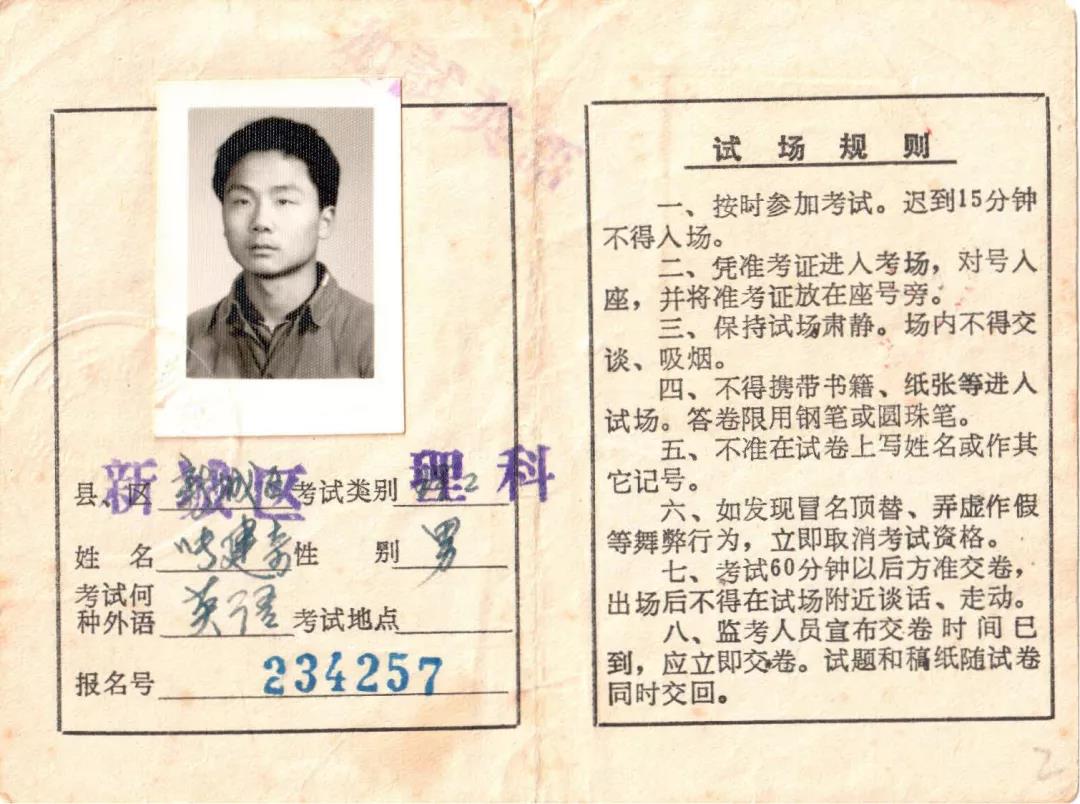 新城区 理科
县、区 新城区 考试类别 理工
姓 名 建 性 别 男
考试何种外语 英语 考试地点
报名号 234257
试场规则
一、按时参加考试。迟到15分钟
不得入场。
二、凭准考证进入考场，对号入
座，并将准考证放在座号旁。
三、保持试场肃静。场内不得交
谈、吸烟。
四、不得携带书籍、纸张等进入
试场。答卷限用钢笔或圆珠笔。
五、不准在试卷上写姓名或作其
它记号。
六、如发现冒名顶替、弄虚作假
等舞弊行为，立即取消考试资格。
七、考试60分钟以后方准交卷，
出场后不得在试场附近谈话、走动。
八、监考人员宣布交卷时间已
到，应立即交卷。试题和稿纸随试卷
同时交回。
2